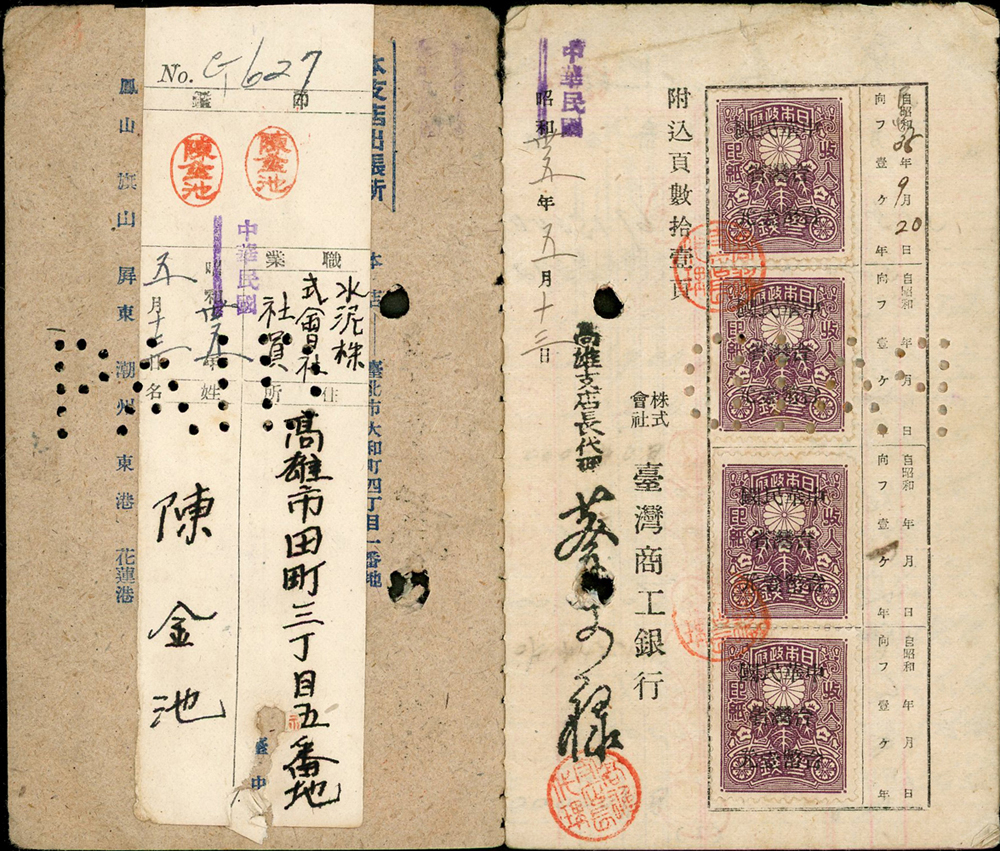 No. 627
印鑑
陳金池
陳金池
職業
水泥株
式會社
社員
中華民國
昭和卅五年
五月十三日
住所
高雄市田町三丁目五番地
姓名
陳金池
本支店出張所
臺北市大和町四丁目一番地
鳳山 旗山 屏東 潮州 東港 花蓮港
臺中
自昭和35年9月20日
向フ壹ケ年
自昭和 年 月 日
向フ壹ケ年
自昭和 年 月 日
向フ壹ケ年
自昭和 年 月 日
向フ壹ケ年
日本政府
收入印紙
中華民國
台灣省
日本政府
收入印紙
中華民國
台灣省
日本政府
收入印紙
中華民國
台灣省
日本政府
收入印紙
中華民國
台灣省
附込頁數拾壹頁
中華民國
昭和卅五年五月十三日
株式會社 臺灣商工銀行
高雄支店長代理